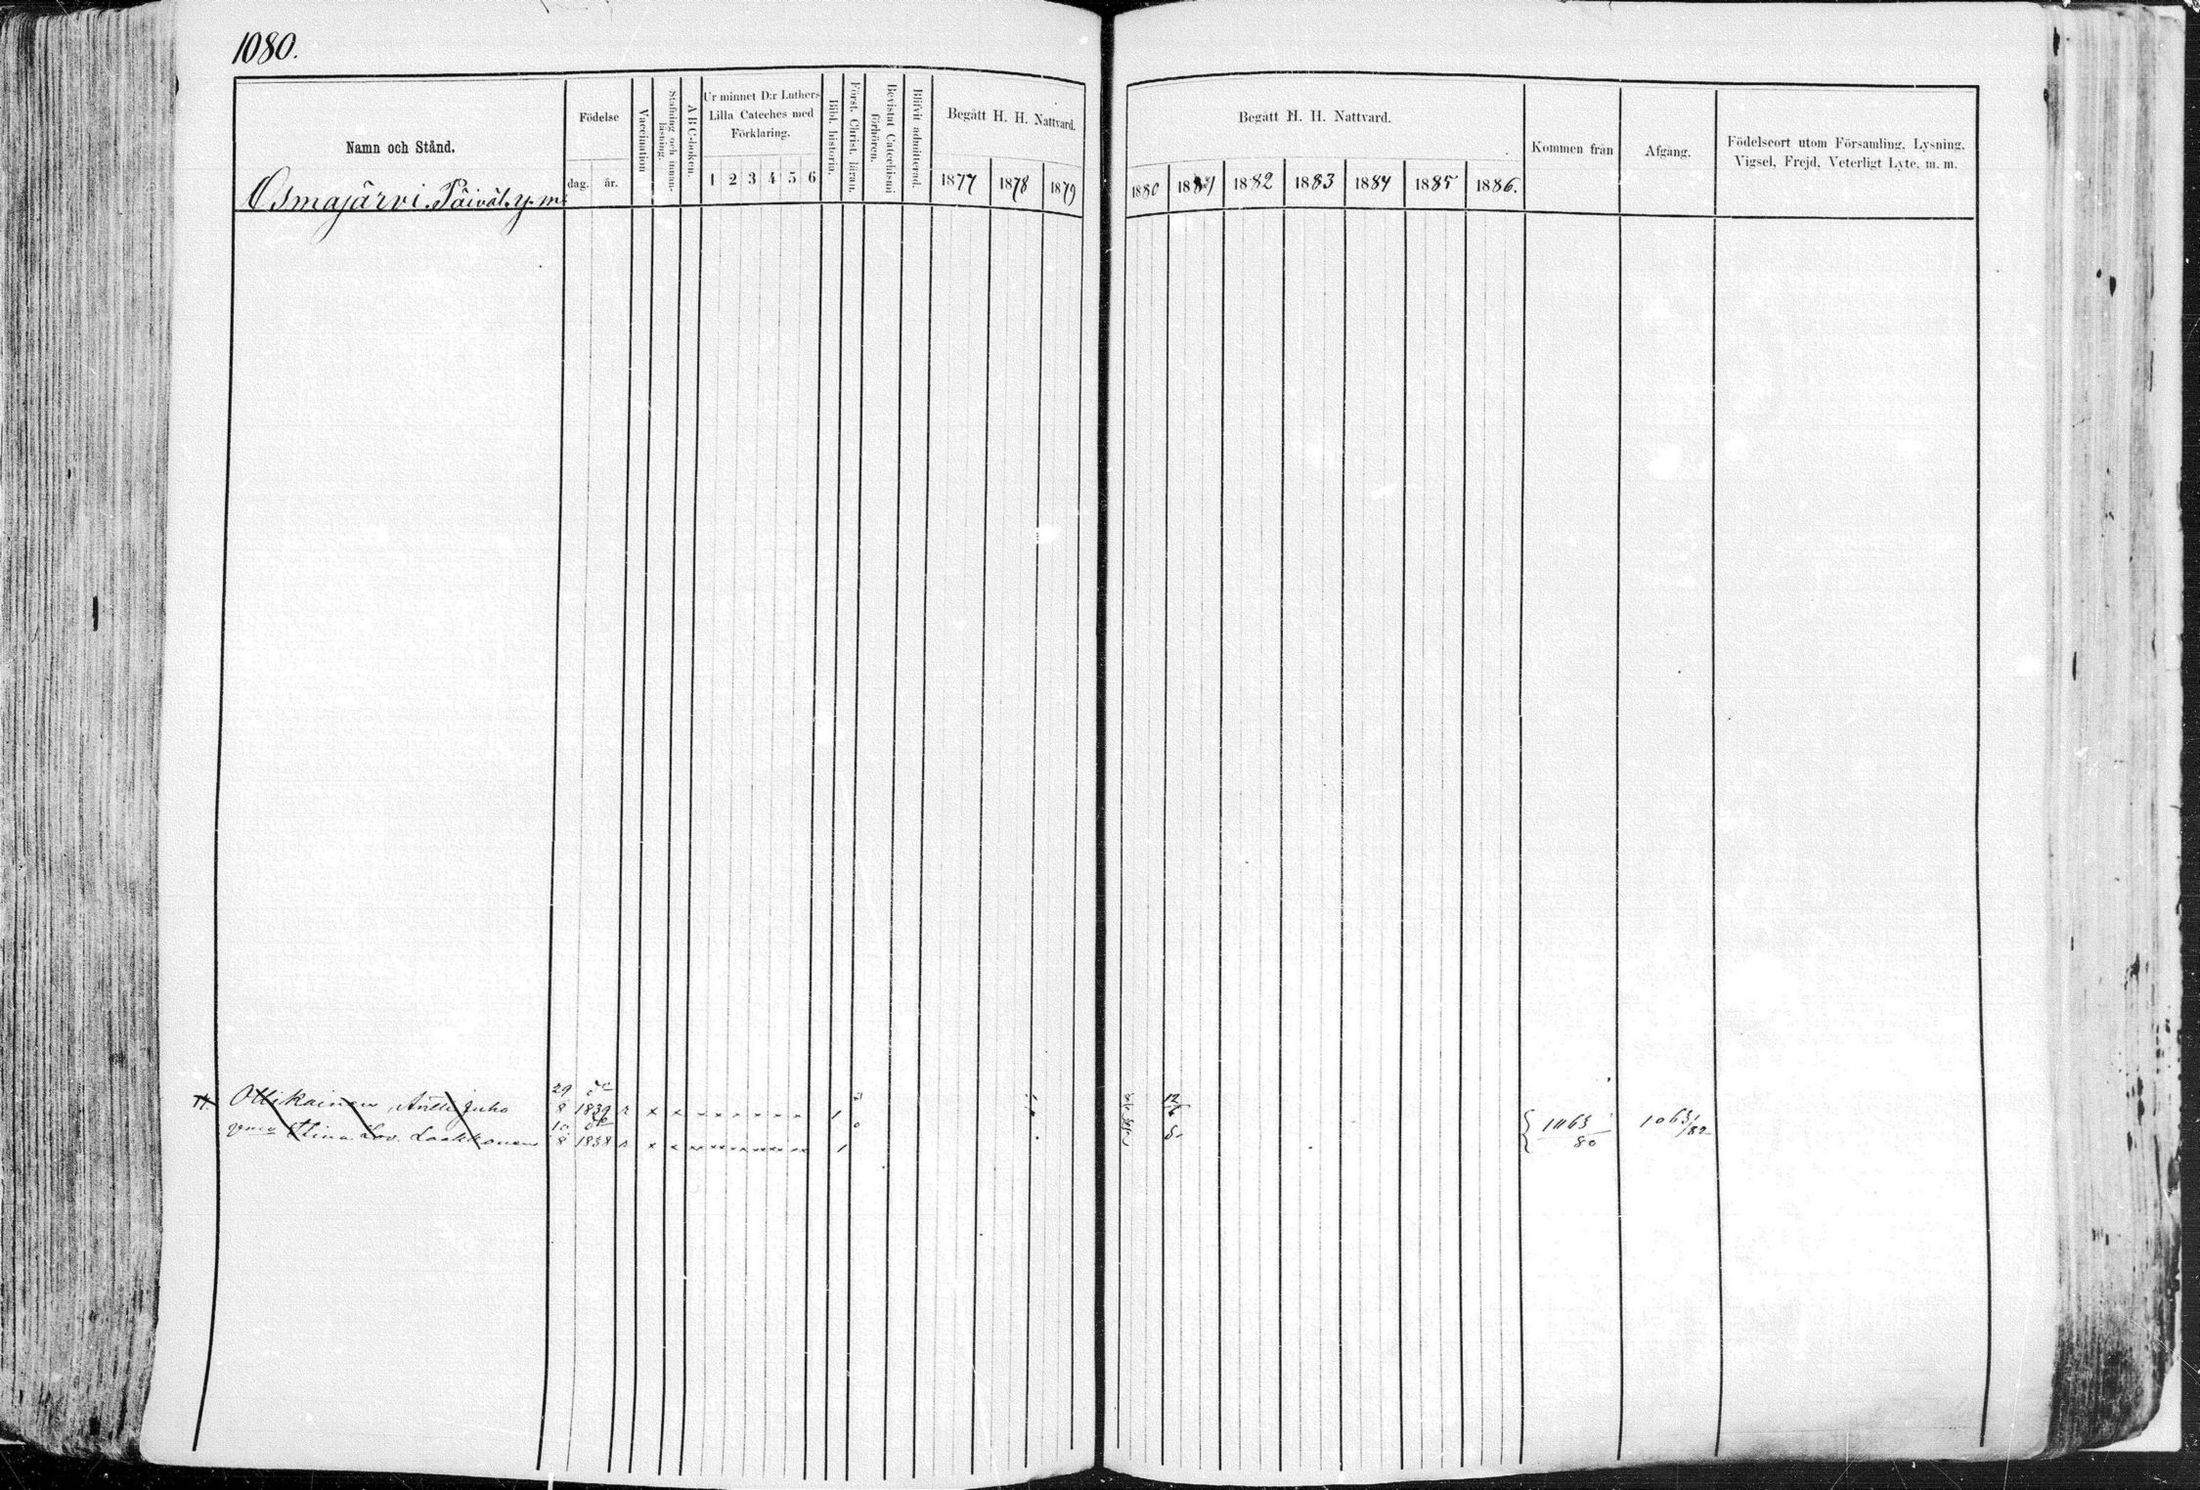 1080.
Namn och Stånd.
Osmajärvi. Päiväl. y. m.
Födelse
dag. år.
Vaccination
Stafning och innan-läsning.
A B C-boken.
Ur minnet D:r Luthers Lilla Cateches med Förklaring.
1 2 3 4 5 6
Bibl. historia.
Först. Christ. läran.
Bevistat Catechismi förhören.
Blifvit admitterad.
Begått H. H. Nattvard.
1877 1878 1879
Begått H. H. Nattvard.
1880 1881 1882 1883 1884 1885 1886.
Kommen från
Afgång.
Födelseort utom Församling, Lysning, Vigsel, Frejd, Veterligt Lyte, m. m.
Ottikainen, Antti Juho 29/8 1839 x x x x x x x x x 1 12/6
Stina Lov. Laakkonen 10/8 1838 x x x x x x x x x 1
1063/80 1063/82